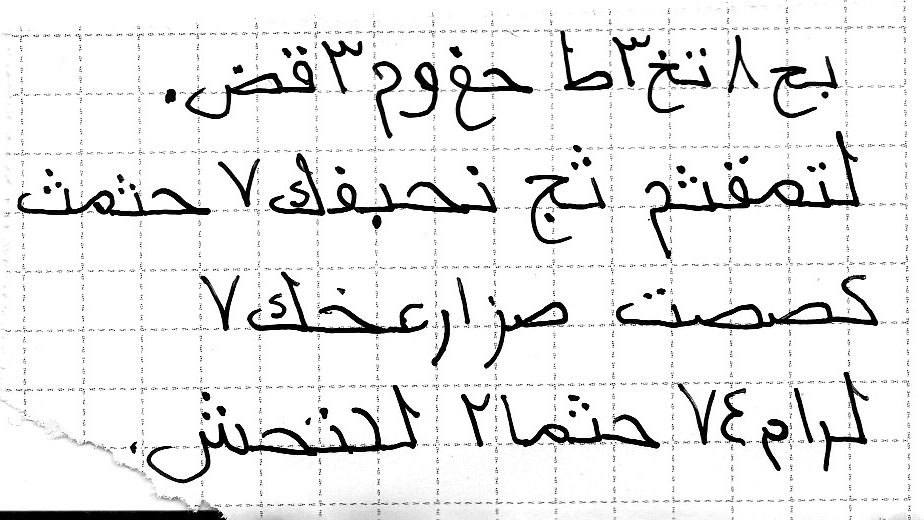 بح٨تخ٣ط حغوم٣قض.
لتمقثم ثج نحبفك٧ حثمث
كصصت صزارعخك٧
لرام٧٤ حثما٢ لحنخش.